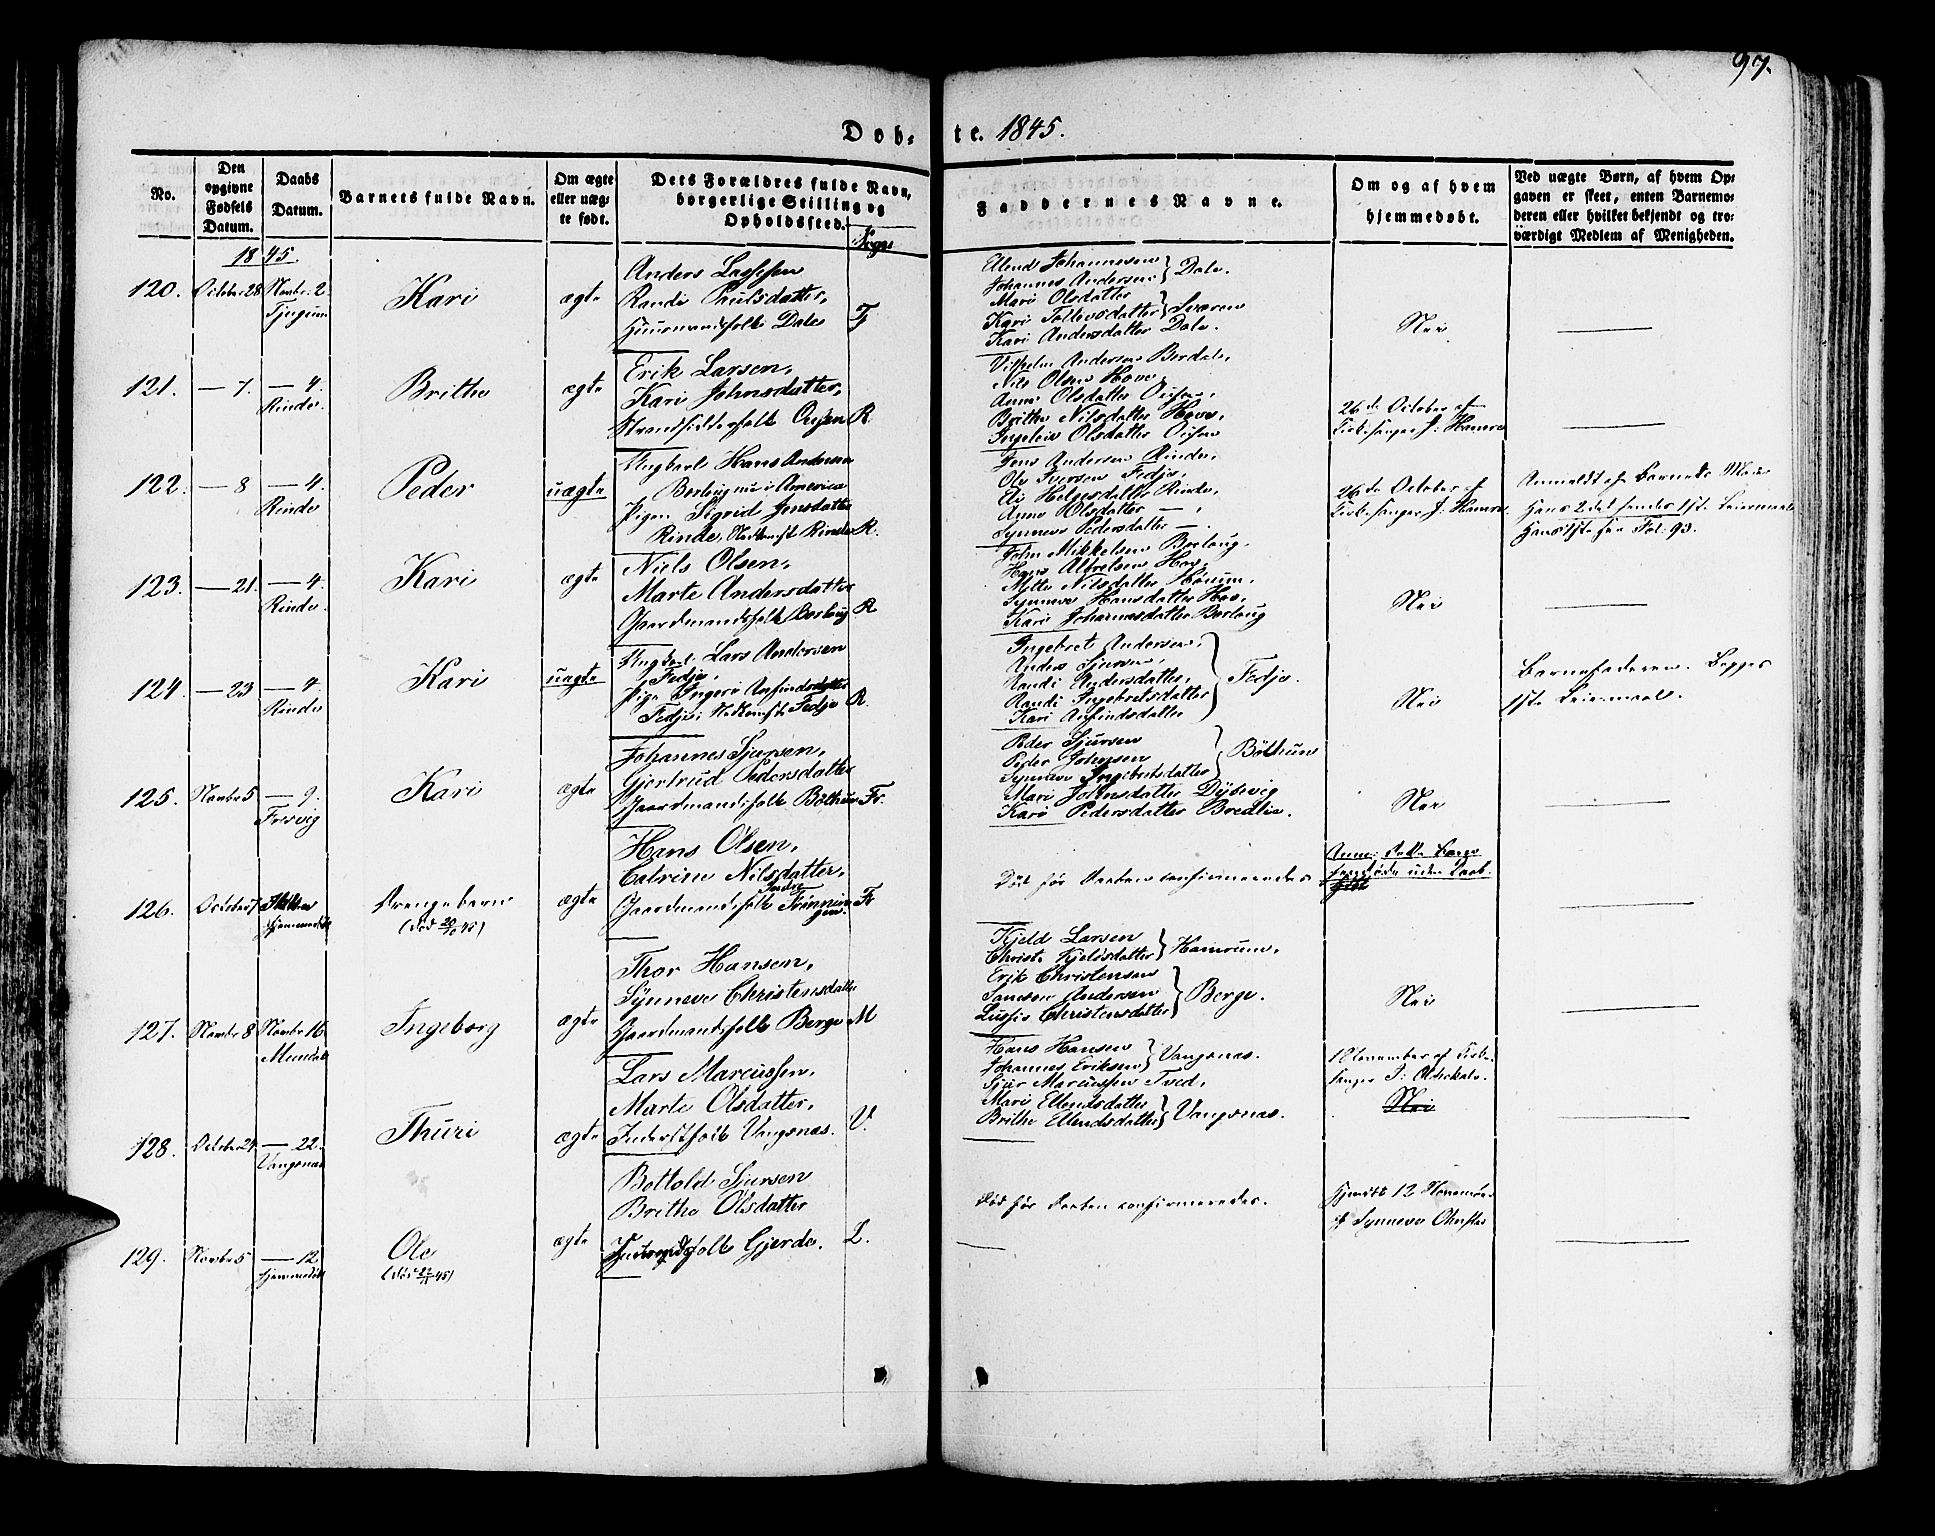 97.
Døb- te. 1845.
No.
Den opgivne Fødsels Datum.
Daabs Datum.
Barnets fulde Navn.
Om ægte eller uæg- te født.
Dets Forældres fulde Navn, borgerlige Stilling og Opholdssted.
Sogn
Faddernes Navne.
Om og af hvem hjemmedøbt.
Ved uægte Børn, af hvem Op- gaven er skeet, enten Barnemo- deren eller hvilket bekjendt og tro- værdigt Medlem af Menigheden.
1845.
120. October 28 Novbr. 2. Tjugum
Kari
ægte
Anders Lassesen
Randi Paulsdatter,
Huusmandsfolk Dale F
Ellend Johannesen
Johannes Andersen } Dale.
Mari Olsdatter
Kari Tollevsdatter } Sværen
Kari Andersdatter Dale.
Nei
121. — 7. — 4. Rinde.
Brithe
ægte
Erik Larsen,
Kari Johnsdatter,
Strandsidderfolk R.
Vilhelm Andersen Berdal,
Nils Olsen Hove
Anne Olsdatter
Brithe Nilsdatter Hove,
Ingeleiv Olsdatter
26de October af
Kirkesanger J: Hamre
122. — 8 — 4. Rinde
Peder
uægte
Ungkarl Hans Andersen
Borlaug nu i America
Pigen Sigrid Jensdatter
Rinde, R.
Jens Andersen Rinde,
Ole Iversen Fedje,
Eli Helgesdatter Rinde,
Anne Olsdatter — ,
Synneve Pedersdatter — .
26de October af
Kirkesanger J: Hamre.
Anmeldt af Barnets Moder
Hans 2det hendes 1ste Leiermaal
Hans 1ste see Fol. 93.
123. — 21. — 4. Rinde.
Kari
ægte
Niels Olsen,
Marte Andersdatter
Gaardmandsfolk Borlaug R
John Mikkelsen Borlaug.
Mette Nilsdatter
Synneve Hansdatter Hov,
Kari Johannesdatter Borlaug
Nei
124. — 23 — 4. Rinde
Kari
uægte
Ungkarl Lars Andersen
Fedje,
Pige Ingeri Anfindsdatter
Fedje, Fedje R.
Ingebret Andersen,
Anders Sjursen,
Randi Andersdatter,
Randi Ingebretsdatter
Kari Anfindsdatter } Fedje.
Nei
Barnefaderen. Begges
1ste Leiermaal.
125. Novbr 5 — 9. Fresvig
Kari
ægte
Johannes Sjursen,
Gjertrud Pedersdatter
Gaardmandsfolk Bøthun Fr.
Peder Sjursen
Peder Johnsen
Synneve Ingebretsdatter } Bøthun
Mari Johnsdatter Dybevig
Kari Pedersdatter Bredlie.
Nei
126. October 7
Drengebarn
(død 20/10 45)
ægte
Hans Olsen,
Catrine Nilsdatter,
Gaardmandsfolk Fr
Død før Daaben confirmeredes
127. Novbr 8 Novbr 16 Mundal
Ingeborg
ægte
Thor Hansen,
Synneve Christensdatter
Gaardmandsfolk Berge M
Kjeld Larsen
Christi Kjeldsdatter } Hamrum,
Erik Christensen
Samson Andersen
Lussie Christensdatter } Berge.
Nei
128. October 24 — 22. Vangsnæs
Thuri
ægte
Lars Marcussen,
Marte Olsdatter,
Inderstfolk Vangsnæs. V.
Hans Hansen
Johannes Eriksen } Vangsnæs.
Sjur Marcussen Tved,
Mari Ellendsdatter
Brithe Ellendsdatter } Vangsnæs.
November af Kirke-
sanger
Nei
129. Novbr 5 — 12 hjemmedøbt
Ole
(død 22/11 45)
ægte
Bottold Sjursen
Brithe Olsdatter
Gjerde. L.
Død før Daaben confirmeredes.
Hjemdøbt 12 November
af Synneve